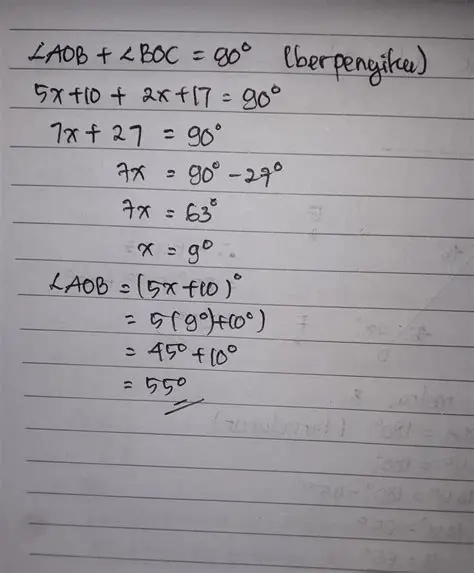 ∠AOB + ∠BOC = 90° (berpenyiku)
5x+10 + 2x+17 = 90°
7x + 27 = 90°
7x = 90° - 27°
7x = 63°
x = 9°
∠AOB = (5x+10)°
= 5(9°)+10°)
= 45° + 10°
= 55°